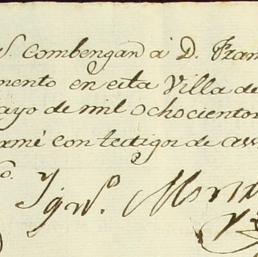 S. combengan à D. Fran
mento en esta Villa de
ayo de mil ochocientos
irmé con testigos de ass
Ygnº.